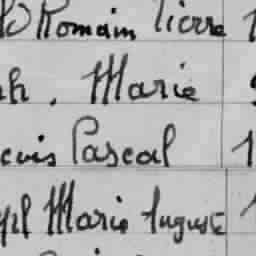 Romain Pierre 1
ph. Marie
Louis Pascal 1
Marie Auguste 1